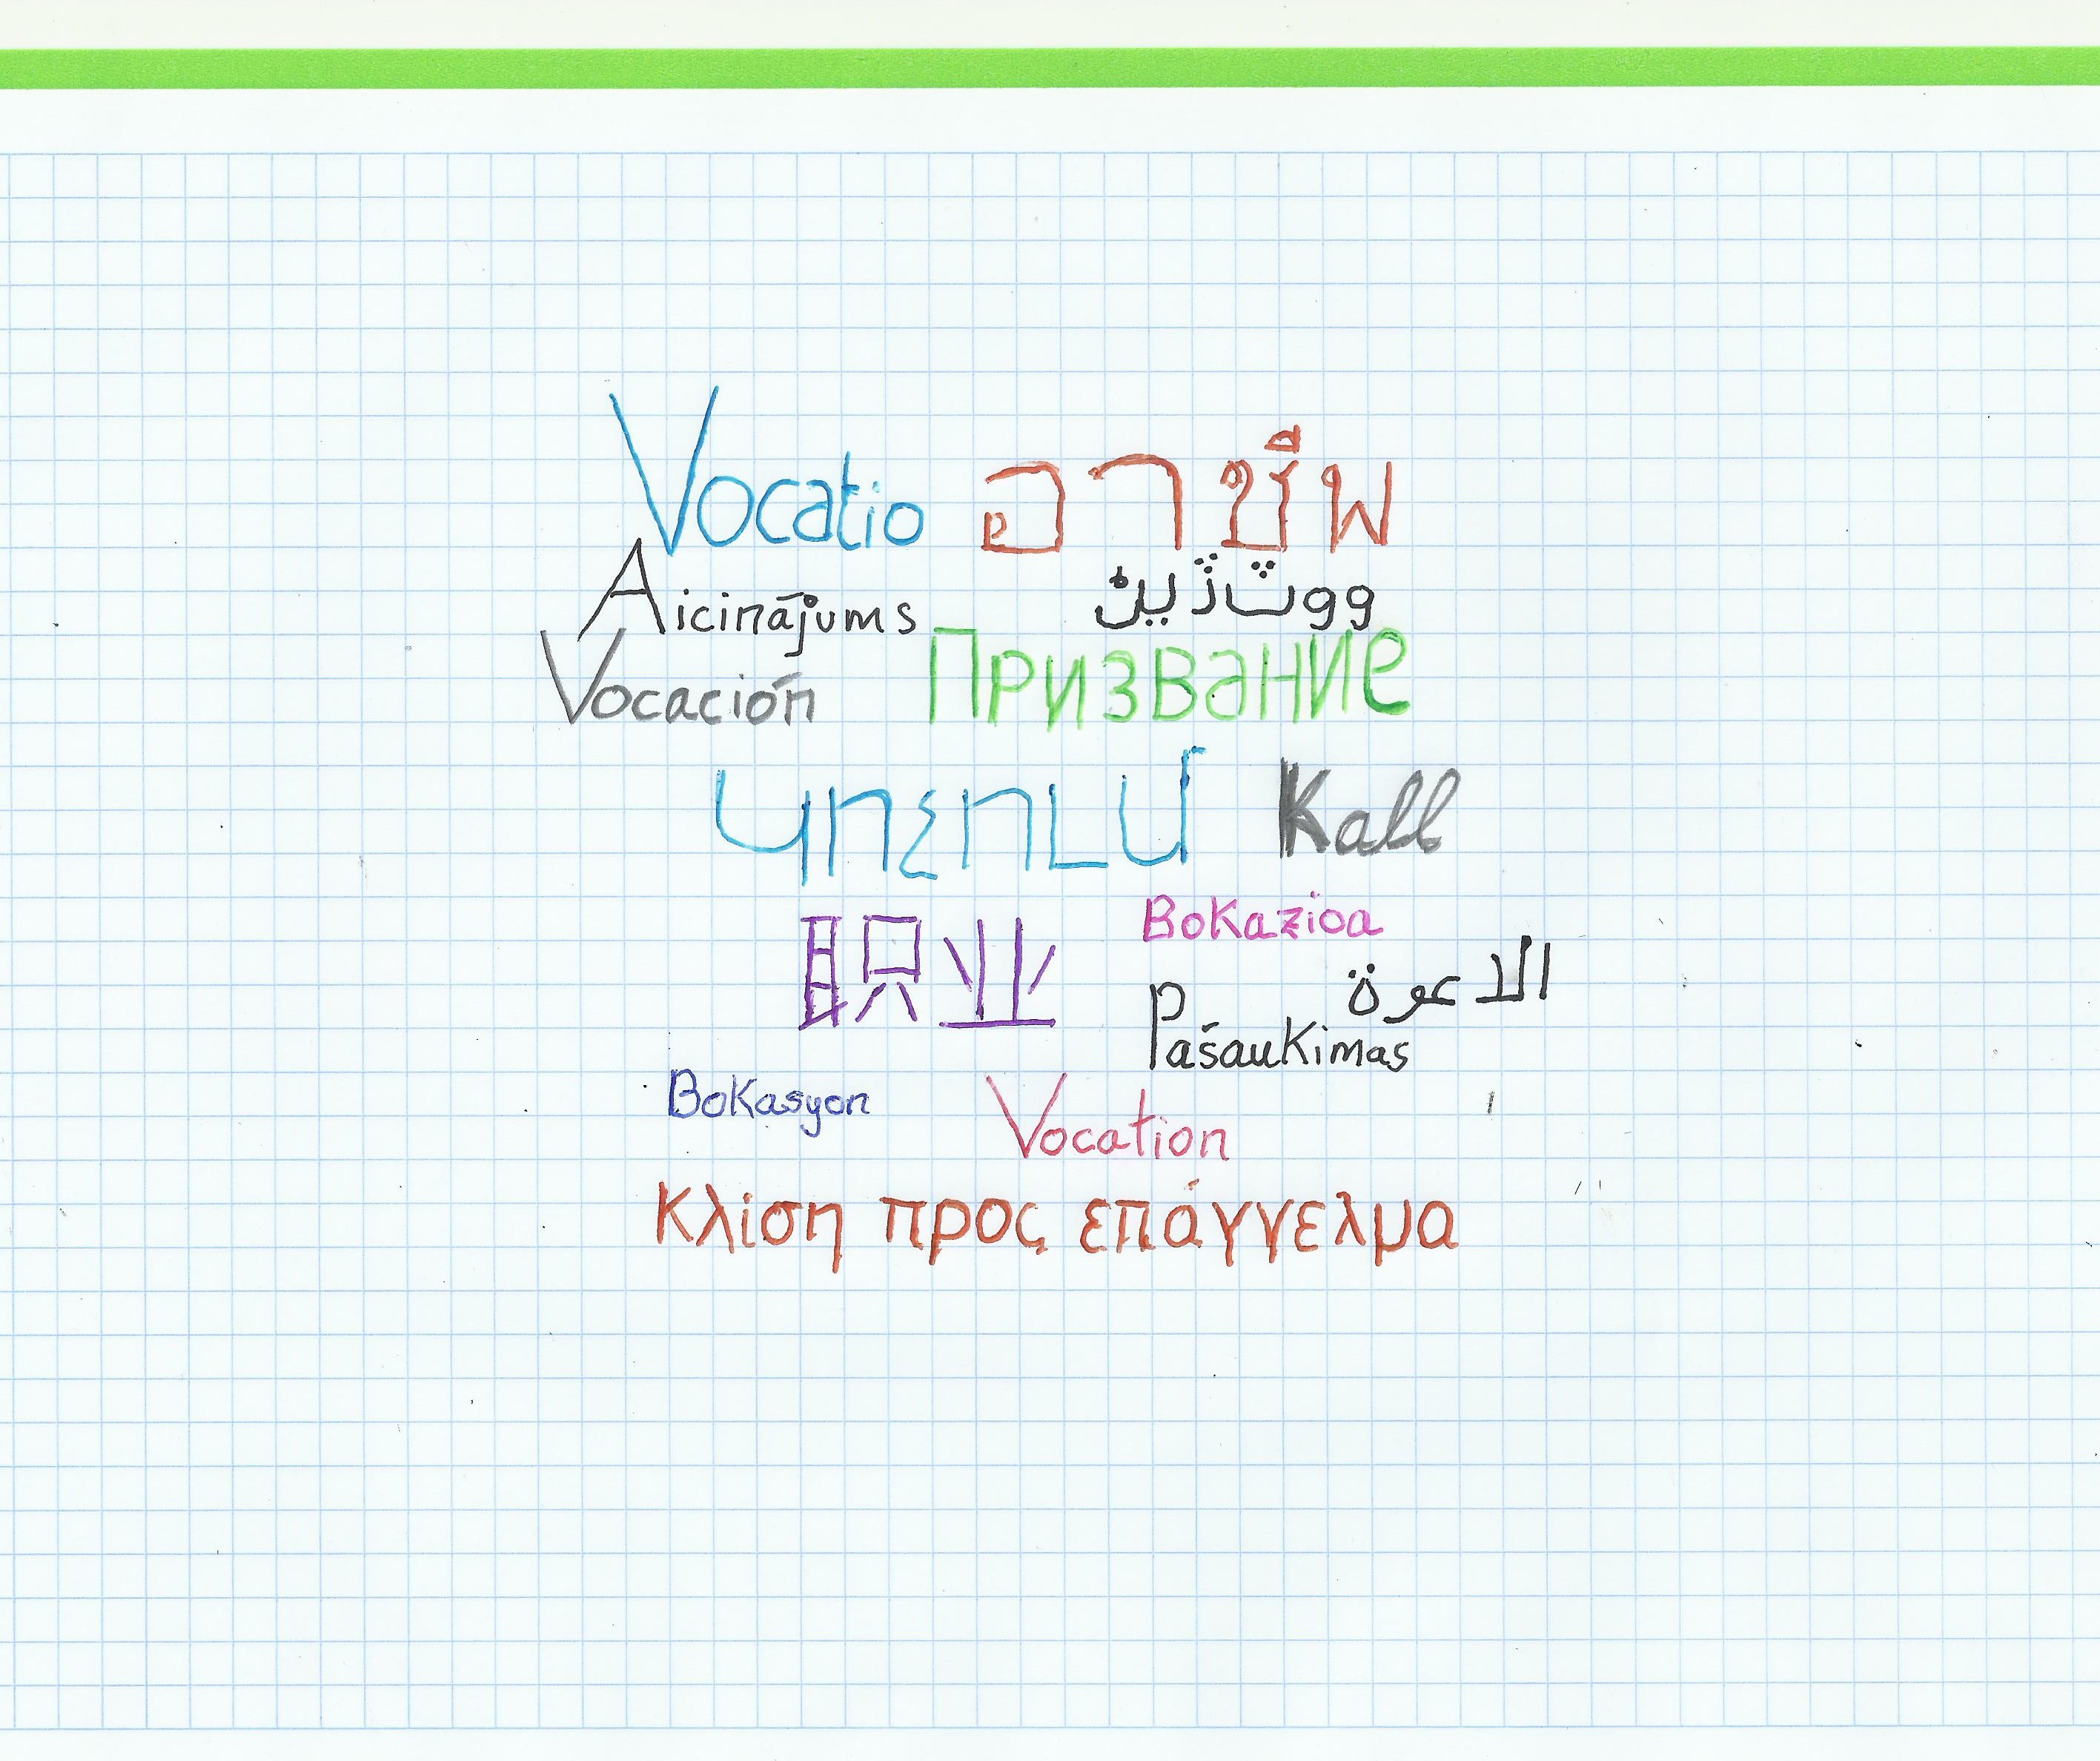 Vocatio อาชีพ
Aicinājums
Vocación Призвание
Կոչում Kall
职业 Bokazioa
الدعوة
Pašaukimas
Bokasyon Vocation
Κλίση προς επάγγελμα